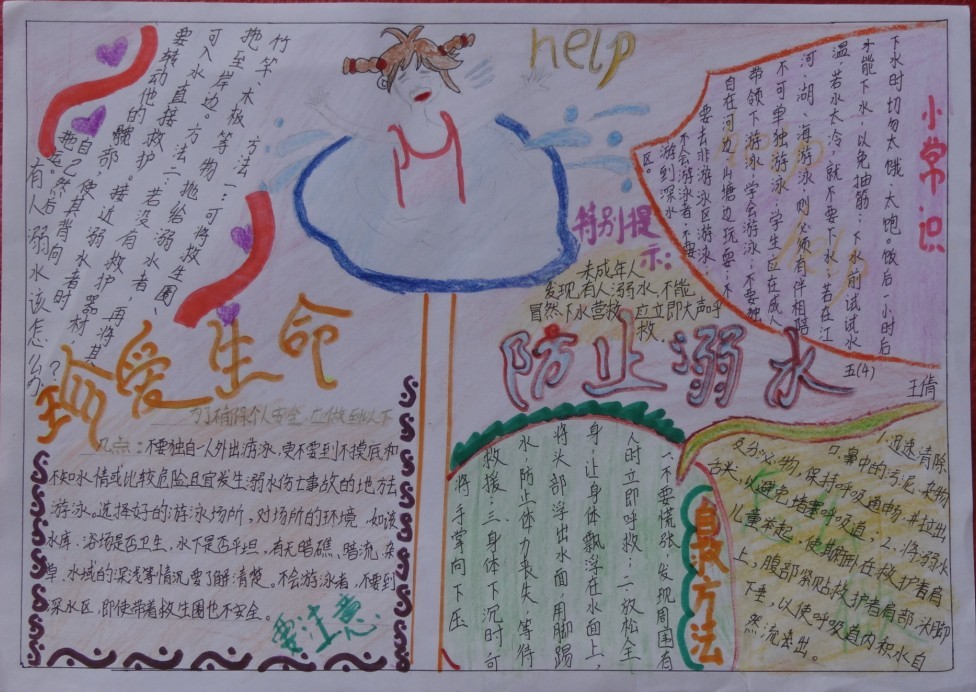 help
有人溺水该怎么办？
方法一：可将救生圈、
竹竿、木板等物抛给溺水者，再将其
拖至岸边。方法二：若没有救护器材，
可入水直接救护。接近溺水者时
要转动他的髋部，使其背向
自己然后拖运。
珍爱生命
为了确保个人安全，应做到以下
几点：不要独自一人外出游泳，更不要到不摸底和
不知水情或比较危险且宜发生溺水伤亡事故的地方去
游泳。选择好的游泳场所，对场所的环境，如该
水库、浴场是否卫生，水下是否平坦，有无暗礁、暗流、杂
草，水域的深浅等情况要了解清楚。不会游泳者，不要到
深水区，即使带着救生圈也不安全。
要注意
特别提
示：
未成年人
发现有人溺水，不能
冒然下水营救，应立即大声呼
救。
防止溺水
小常识
下水时切勿太饿、太饱。饭后一小时后
才能下水，以免抽筋；下水前试试水
温，若水太冷，就不要下水；若在江
河、湖、海游泳，则必须有伴相陪
不可单独游泳；学生应在成人
带领下游泳，学会游泳；不要独
自在河边、山塘边玩耍；不
要去非游泳区游泳；
不会游泳者，不要
游到深水
区。
五(4)
王倩
自救方法
一、不要慌张，发现周围有
人时立即呼救；二、放松全
身，让身体飘浮在水面上，
将头部浮出水面，用脚踢
水，防止体力丧失，等待
救援；三、身体下沉时可
将手掌向下压
1.迅速清除
口、鼻中的污泥、杂物
及分泌物，保持呼吸通畅，并拉出
舌头，以避免堵塞呼吸道；2.将溺水
儿童举起，使其俯卧在救护者肩
上，腹部紧贴救护者肩部，头脚
下垂，以使呼吸道内积水自
然流出。